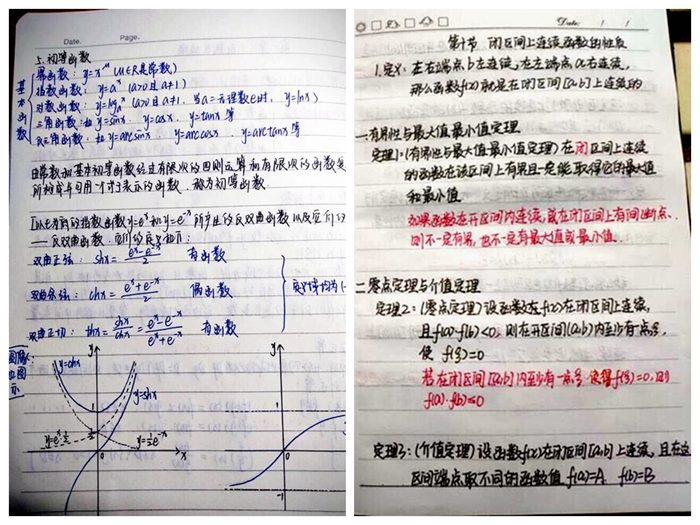 Date.  Page.
5. 初等函数
基本函数
幂函数: y=x^μ (μ∈R是常数)
指数函数: y=a^x (a>0且a≠1)
对数函数: y=log_a x (a>0且a≠1, 当a=无理数e时, y=lnx)
三角函数: 如y=sinx, y=cosx, y=tanx等
反三角函数: 如y=arcsinx, y=arccosx, y=arctanx等
由常数和基本初等函数经过有限次的四则运算和有限次的函数复
所构成并可用一个式子表示的函数, 称为初等函数.
以e为底的指数函数y=e^x和y=e^-x所产生的双曲函数以及它们的
—— 反双曲函数. 它们的定义如下:
双曲正弦: shx = (e^x-e^-x)/2  奇函数
双曲余弦: chx = (e^x+e^-x)/2  偶函数
定义域均为(-
双曲正切: thx = shx/chx = (e^x-e^-x)/(e^x+e^-x)  奇函数
图像如图示
y
y=chx
y=shx
1
y=½e^-x
x
y
1
-1
Date: / /
第十节 闭区间上连续函数的性质
1.定义: 在右端点b左连续, 在左端点a右连续,
那么函数f(x)就是在闭区间[a,b]上连续的
一.有界性与最大值最小值定理
定理1:(有界性与最大值最小值定理) 在闭区间上连续
的函数在该区间上有界且一定能取得它的最大值
和最小值
如果函数在开区间内连续, 或在闭区间上有间断点,
则不一定有界, 也不一定有最大值或最小值.
二.零点定理与介值定理
定理2:(零点定理) 设函数在f(x)在闭区间上连续,
且f(a)·f(b)<0, 则在开区间(a,b)内至少有一点ξ,
使 f(ξ)=0
若在闭区间[a,b]内至少有一点ξ 使得f(ξ)=0, 则
f(a)·f(b)≤0
定理3:(介值定理) 设函数f(x)在闭区间[a,b]上连续, 且在这
区间端点取不同的函数值 f(a)=A f(b)=B